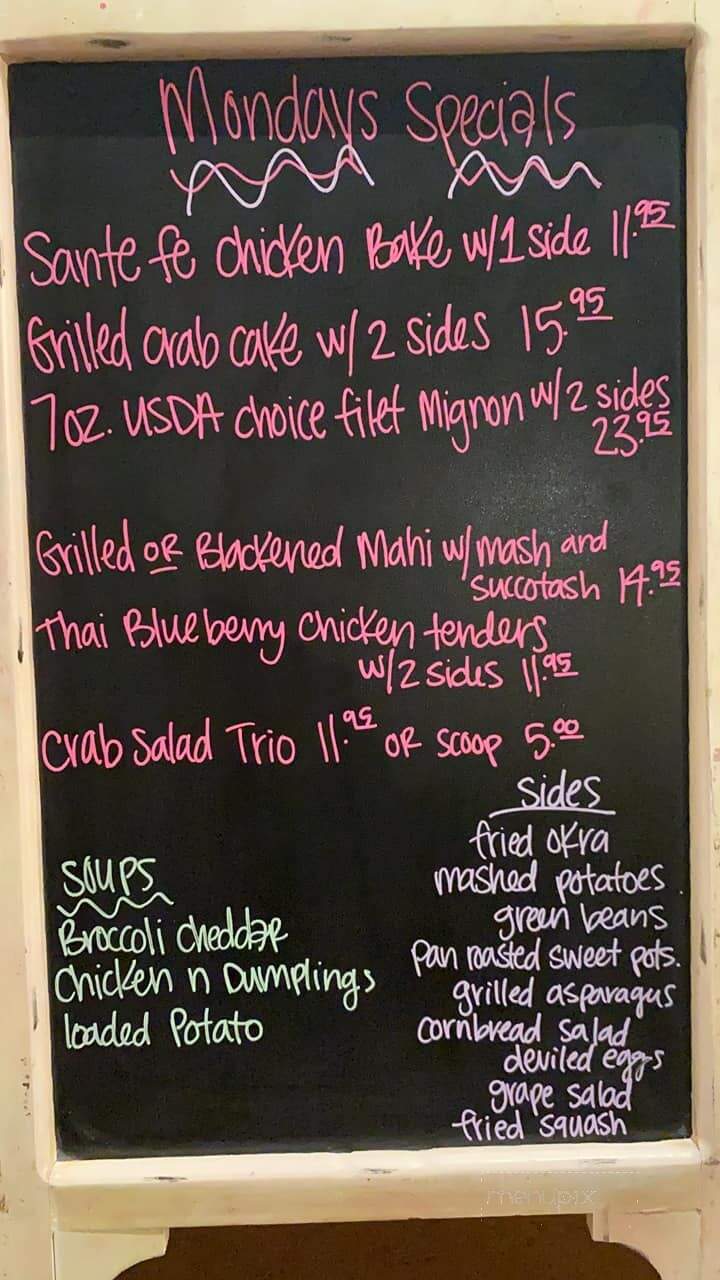 Mondays Specials
Sante fe chicken Bake w/1 side 11.95
Grilled crab cake w/ 2 sides 15.95
7oz. USDA choice filet Mignon w/2 sides
23.95
Grilled OR Blackened Mahi w/mash and
succotash 14.95
Thai Blueberry Chicken tenders
w/2 sides 11.95
Crab Salad Trio 11.95 OR scoop 5.00
Sides
fried okra
mashed potatoes
green beans
pan roasted sweet pots.
grilled asparagus
cornbread salad
deviled eggs
grape salad
fried squash
SOUPS
Broccoli cheddar
Chicken n Dumplings
loaded Potato
menupix